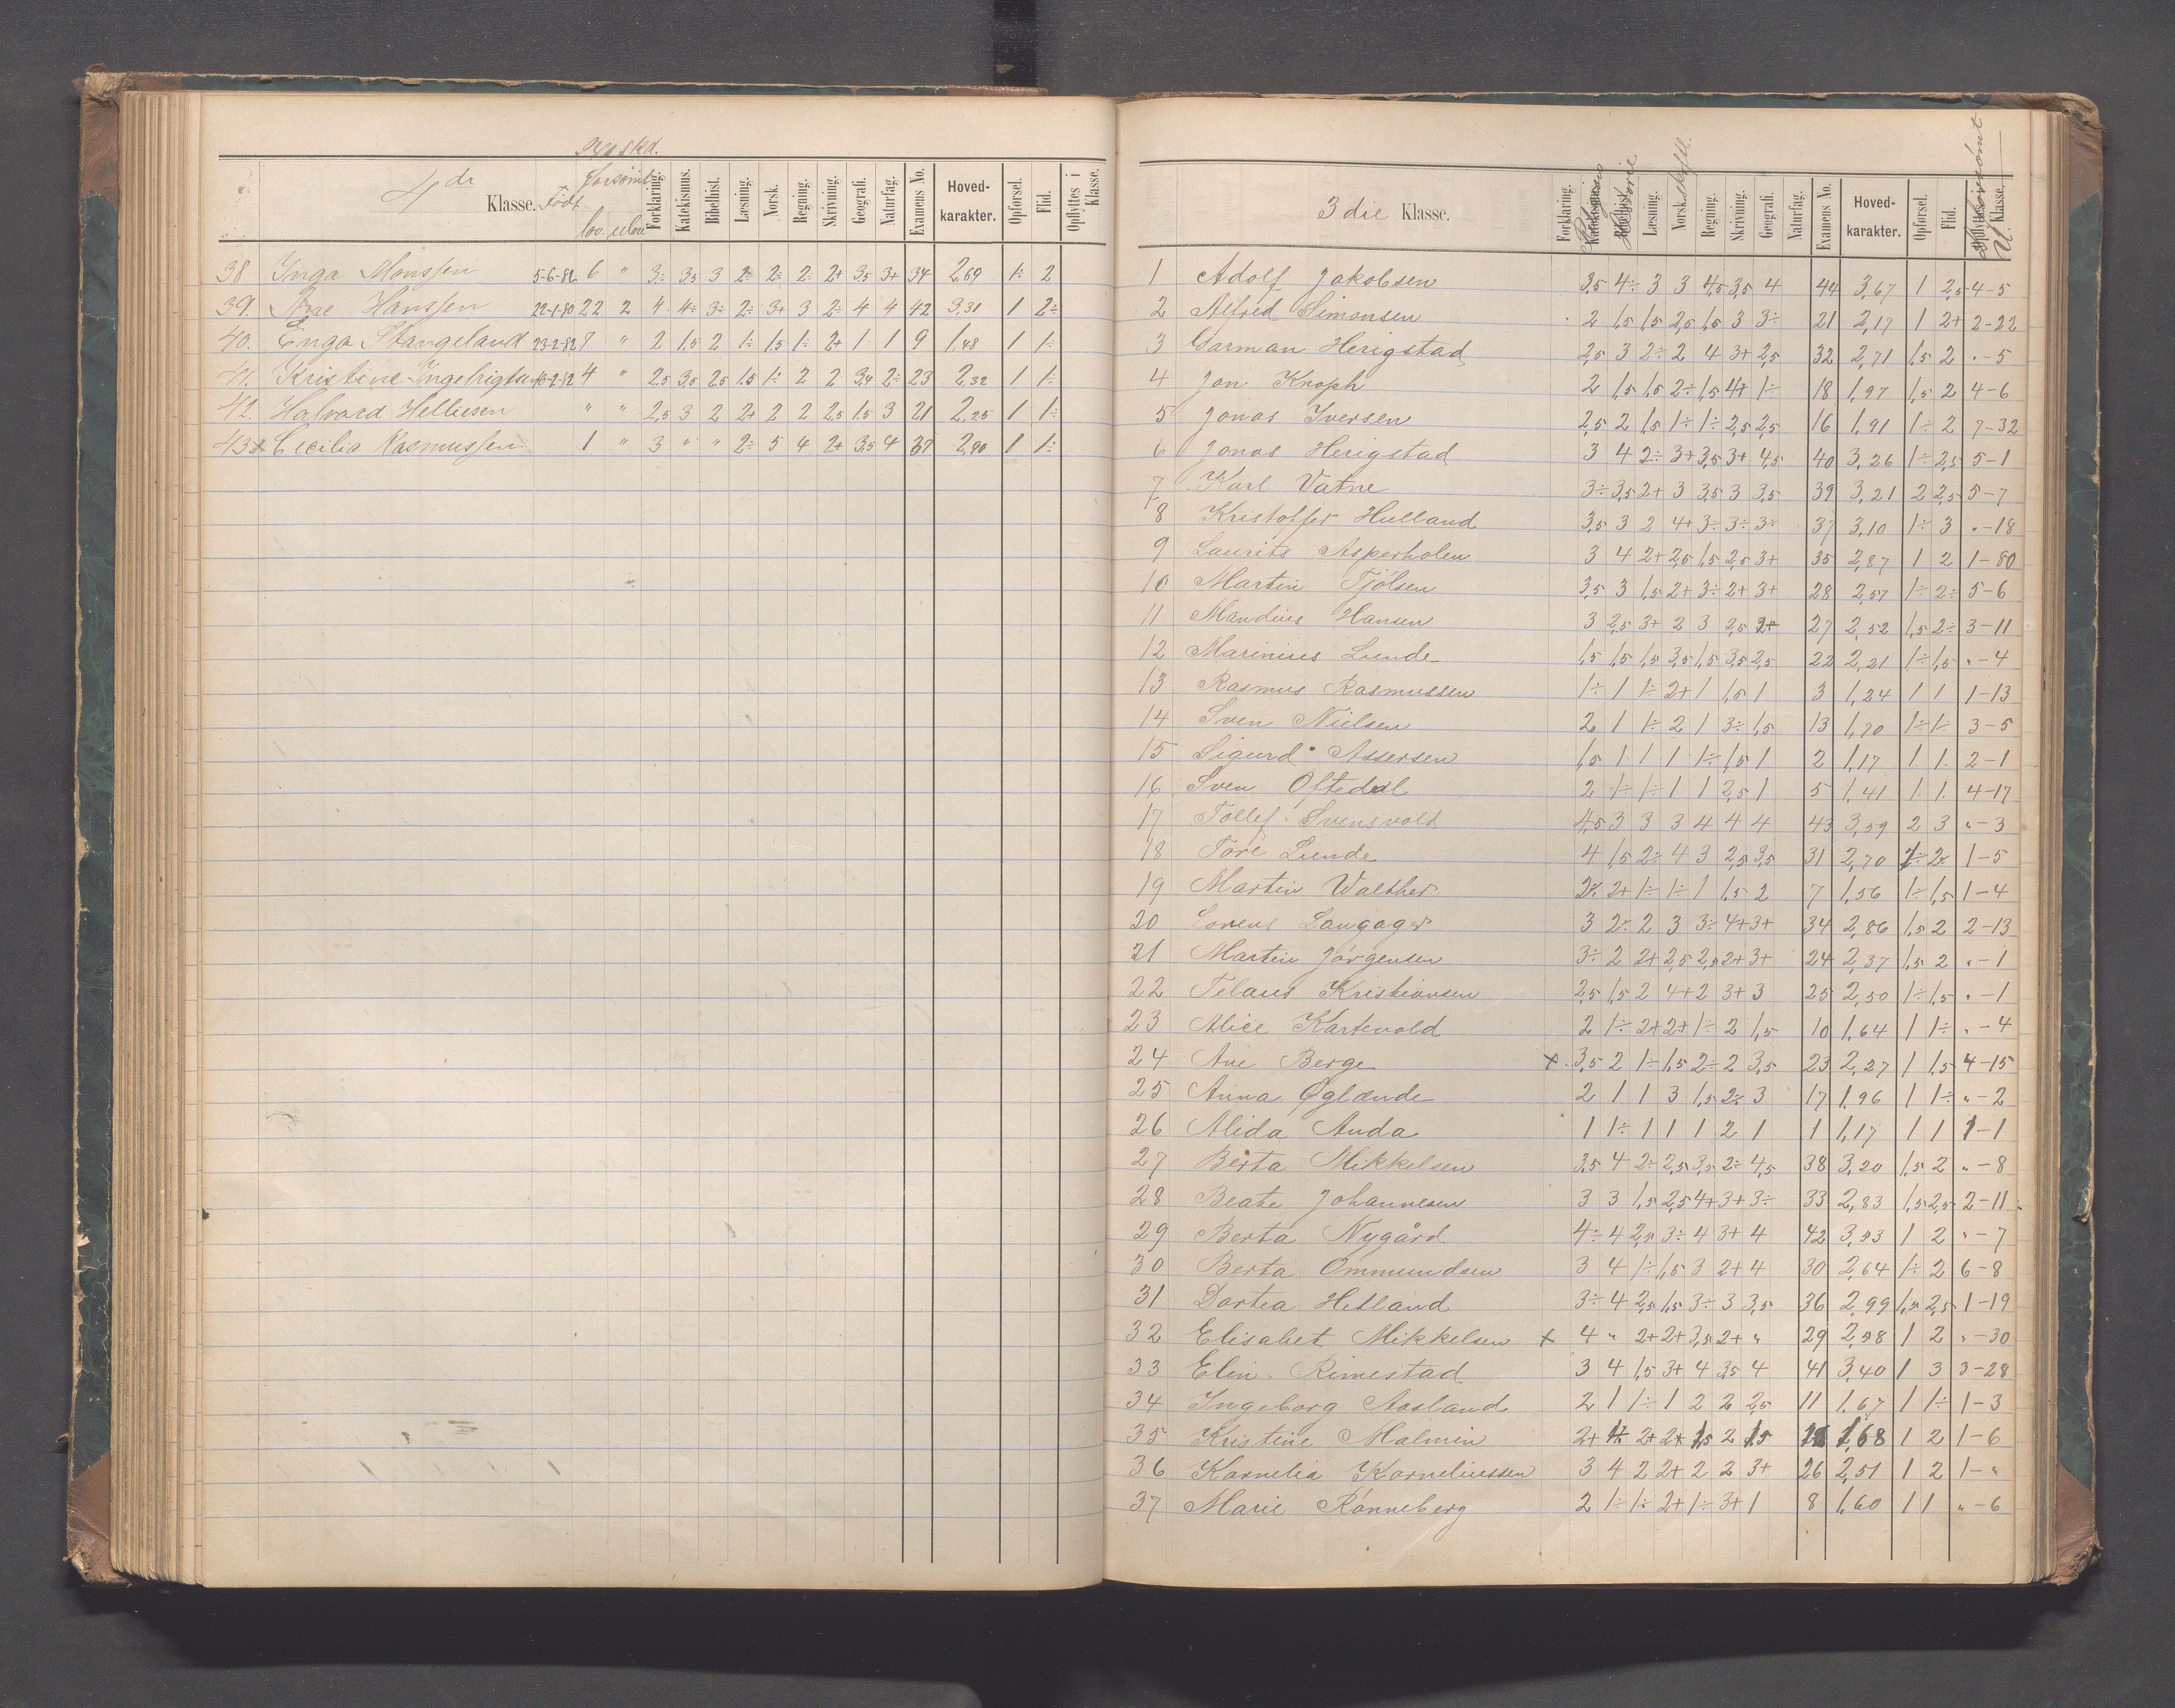 forskd.
4de Klasse. Født forsømt lov. ulov. Forklaring. Katekismus. Bibelhist. Læsning. Norsk. Regning. Skrivning. Geografi. Naturfag. Examens No. Hoved-karakter. Opførsel. Flid. Opflyttes i Klasse.
38 Inga Monssen 5-6-82 6 " 3÷ 3,5 3 2÷ 2÷ 2÷ 2+ 3,5 3+ 34 2,69 1÷ 2
39. Ane Hanssen 22-1-80 22 2 4 4÷ 3÷ 2÷ 3+ 3 2÷ 4 4 42 3,31 1 2÷
40. Enga Stangeland 23-2-82 7 " 2 1,5 2 1÷ 1,5 1÷ 2+ 1 1 9 1,48 1 1÷
41. Kristine Ingebrigtsen 4 " 2,5 3,5 2,5 1,5 1÷ 2 2 3,4 2÷ 23 2,32 1 1÷
42. Halvard Helliesen " " 2,5 3 2 2+ 2 2 2,5 1,5 3 21 2,25 1 1÷
43x Cecilia Rasmussen 1 " 3 " " 2÷ 5 4 2+ 3,5 4 37 2,90 1 1÷
3die Klasse. Forklaring. Katekismus. Bibelhist. Historie Læsning. Norsk skriftl. Regning. Skrivning. Geografi. Naturfag. Examens No. Hoved-karakter. Opførsel. Flid. Opflyttes i Klasse. Forsømt
1 Adolf Jakobsen 3,5 4÷ 3 3 4,5 3,5 4 44 3,67 1 2,5 4-5
2 Alfred Simonsen 2 1,5 1,5 2,5 1,5 3 3÷ 21 2,17 1 2+ 2-22
3 Garman Herigstad 2,5 3 2÷ 2 4 3+ 2,5 32 2,71 1,5 2 "-5
4 Jon Knoph 2 1,5 1,5 2÷ 1,5 4+ 1÷ 18 1,97 1,5 2 4-6
5 Jonas Iversen 2,5 2 1,5 1÷ 1÷ 2,5 2,5 16 1,91 1÷ 2 7-32
6 Jonas Herigstad 3 4 2÷ 3+ 3,5 3+ 4,5 40 3,26 1÷ 2,5 5-1
7 Karl Vatne 3÷ 3,5 2+ 3 3,5 3 3,5 39 3,21 2 2,5 5-7
8 Kristoffer Hulland 3,5 3 2 4+ 3÷ 3÷ 3÷ 37 3,10 1÷ 3 "-18
9 Laurits Asperholen 3 4 2+ 2,5 1,5 2,5 3+ 35 2,87 1 2 1-80
10 Martin Tjölsen 3,5 3 1,5 2+ 3÷ 2+ 3+ 28 2,57 1÷ 2÷ 5-6
11 Mandius Hansen 3 2,5 3+ 2 3 2,5 2+ 27 2,52 1,5 2÷ 3-11
12 Marinius Lunde 1,5 1,5 1,5 3,5 1,5 3,5 2,5 22 2,21 1÷ 1,5 "-4
13 Rasmus Rasmussen 1÷ 1 1÷ 2+ 1 1,5 1 3 1,24 1 1 1-13
14 Sven Nielsen 2 1 1÷ 2 1 3÷ 1,5 13 1,70 1÷ 1÷ 3-5
15 Sigurd Assersen 1,5 1 1 1 1÷ 1,5 1 2 1,17 1 1 2-1
16 Sven Oftedal 2 1÷ 1÷ 1 1 2,5 1 5 1,41 1 1 4-17
17 Tollef Svensvold 4,5 3 3 3 4 4 4 43 3,59 2 3 "-3
18 Tore Lunde 4 1,5 2÷ 4 3 2,5 3,5 31 2,70 1÷ 2÷ 1-5
19 Martin Walther 2÷ 2+ 1÷ 1÷ 1 1,5 2 7 1,56 1÷ 1,5 1-4
20 Lorens Langager 3 2÷ 2 3 3÷ 4+ 3+ 34 2,86 1,5 2 2-13
21 Martin Jörgensen 3÷ 2 2+ 2,5 2,5 2+ 3+ 24 2,37 1,5 2 "-1
22 Telaus Kristiansen 2,5 1,5 2 4+ 2 3+ 3 25 2,50 1÷ 1,5 "-1
23 Alice Kartevold 2 1÷ 2+ 2+ 1÷ 2 1,5 10 1,64 1 1÷ "-4
24 Ane Berge x 3,5 2 1÷ 1,5 2÷ 2 3,5 23 2,27 1 1,5 4-15
25 Anna Øglænde 2 1 1 3 1,5 2÷ 3 17 1,96 1 1÷ "-2
26 Alida Auda 1 1÷ 1 1 1 2 1 1 1,17 1 1 1-1
27 Berta Mikkelsen 3,5 4 2÷ 2,5 3,5 2÷ 4,5 38 3,20 1,5 2 "-8
28 Beate Johannesen 3 3 1,5 2,5 4+ 3+ 3÷ 33 2,83 1,5 2,5 2-11
29 Berta Nygård 4÷ 4 2,5 3÷ 4 3+ 4 42 3,53 1 2 "-7
30 Berta Ommundsen 3 4 1÷ 1,5 3 2+ 4 30 2,64 1÷ 2 6-8
31 Dortea Hetland 3÷ 4 2,5 1,5 3÷ 3 3,5 36 2,99 1,5 2,5 1-19
32 Elisabet Mikkelsen x 4 " 2+ 2+ 3,5 2+ " 29 2,58 1 2 "-30
33 Elin Rimestad 3 4 1,5 3+ 4 3,5 4 41 3,40 1 3 3-28
34 Ingeborg Aasland 2 1 1÷ 1 2 2 2,5 11 1,67 1 1÷ 1-3
35 Kristine Malmin 2+ 2+ 2+ 1,5 2 1,5 1,68 1 2 1-6
36 Kornelia Korneliussen 3 4 2 2+ 2 2 3+ 26 2,51 1 2 1-"
37 Marie Rönneberg 2 1÷ 1÷ 2+ 1÷ 3+ 1 8 1,60 1 1 "-6